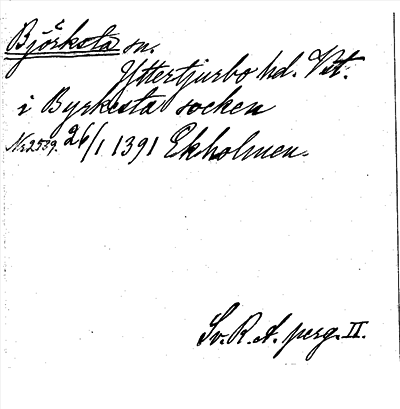 Björksta sn.
Yttertjurbo hd. Vst.
i Byrkesta socken
Nr 2589. 26/1 1391 Ekholmen.
Sv. R. A. perg. II.